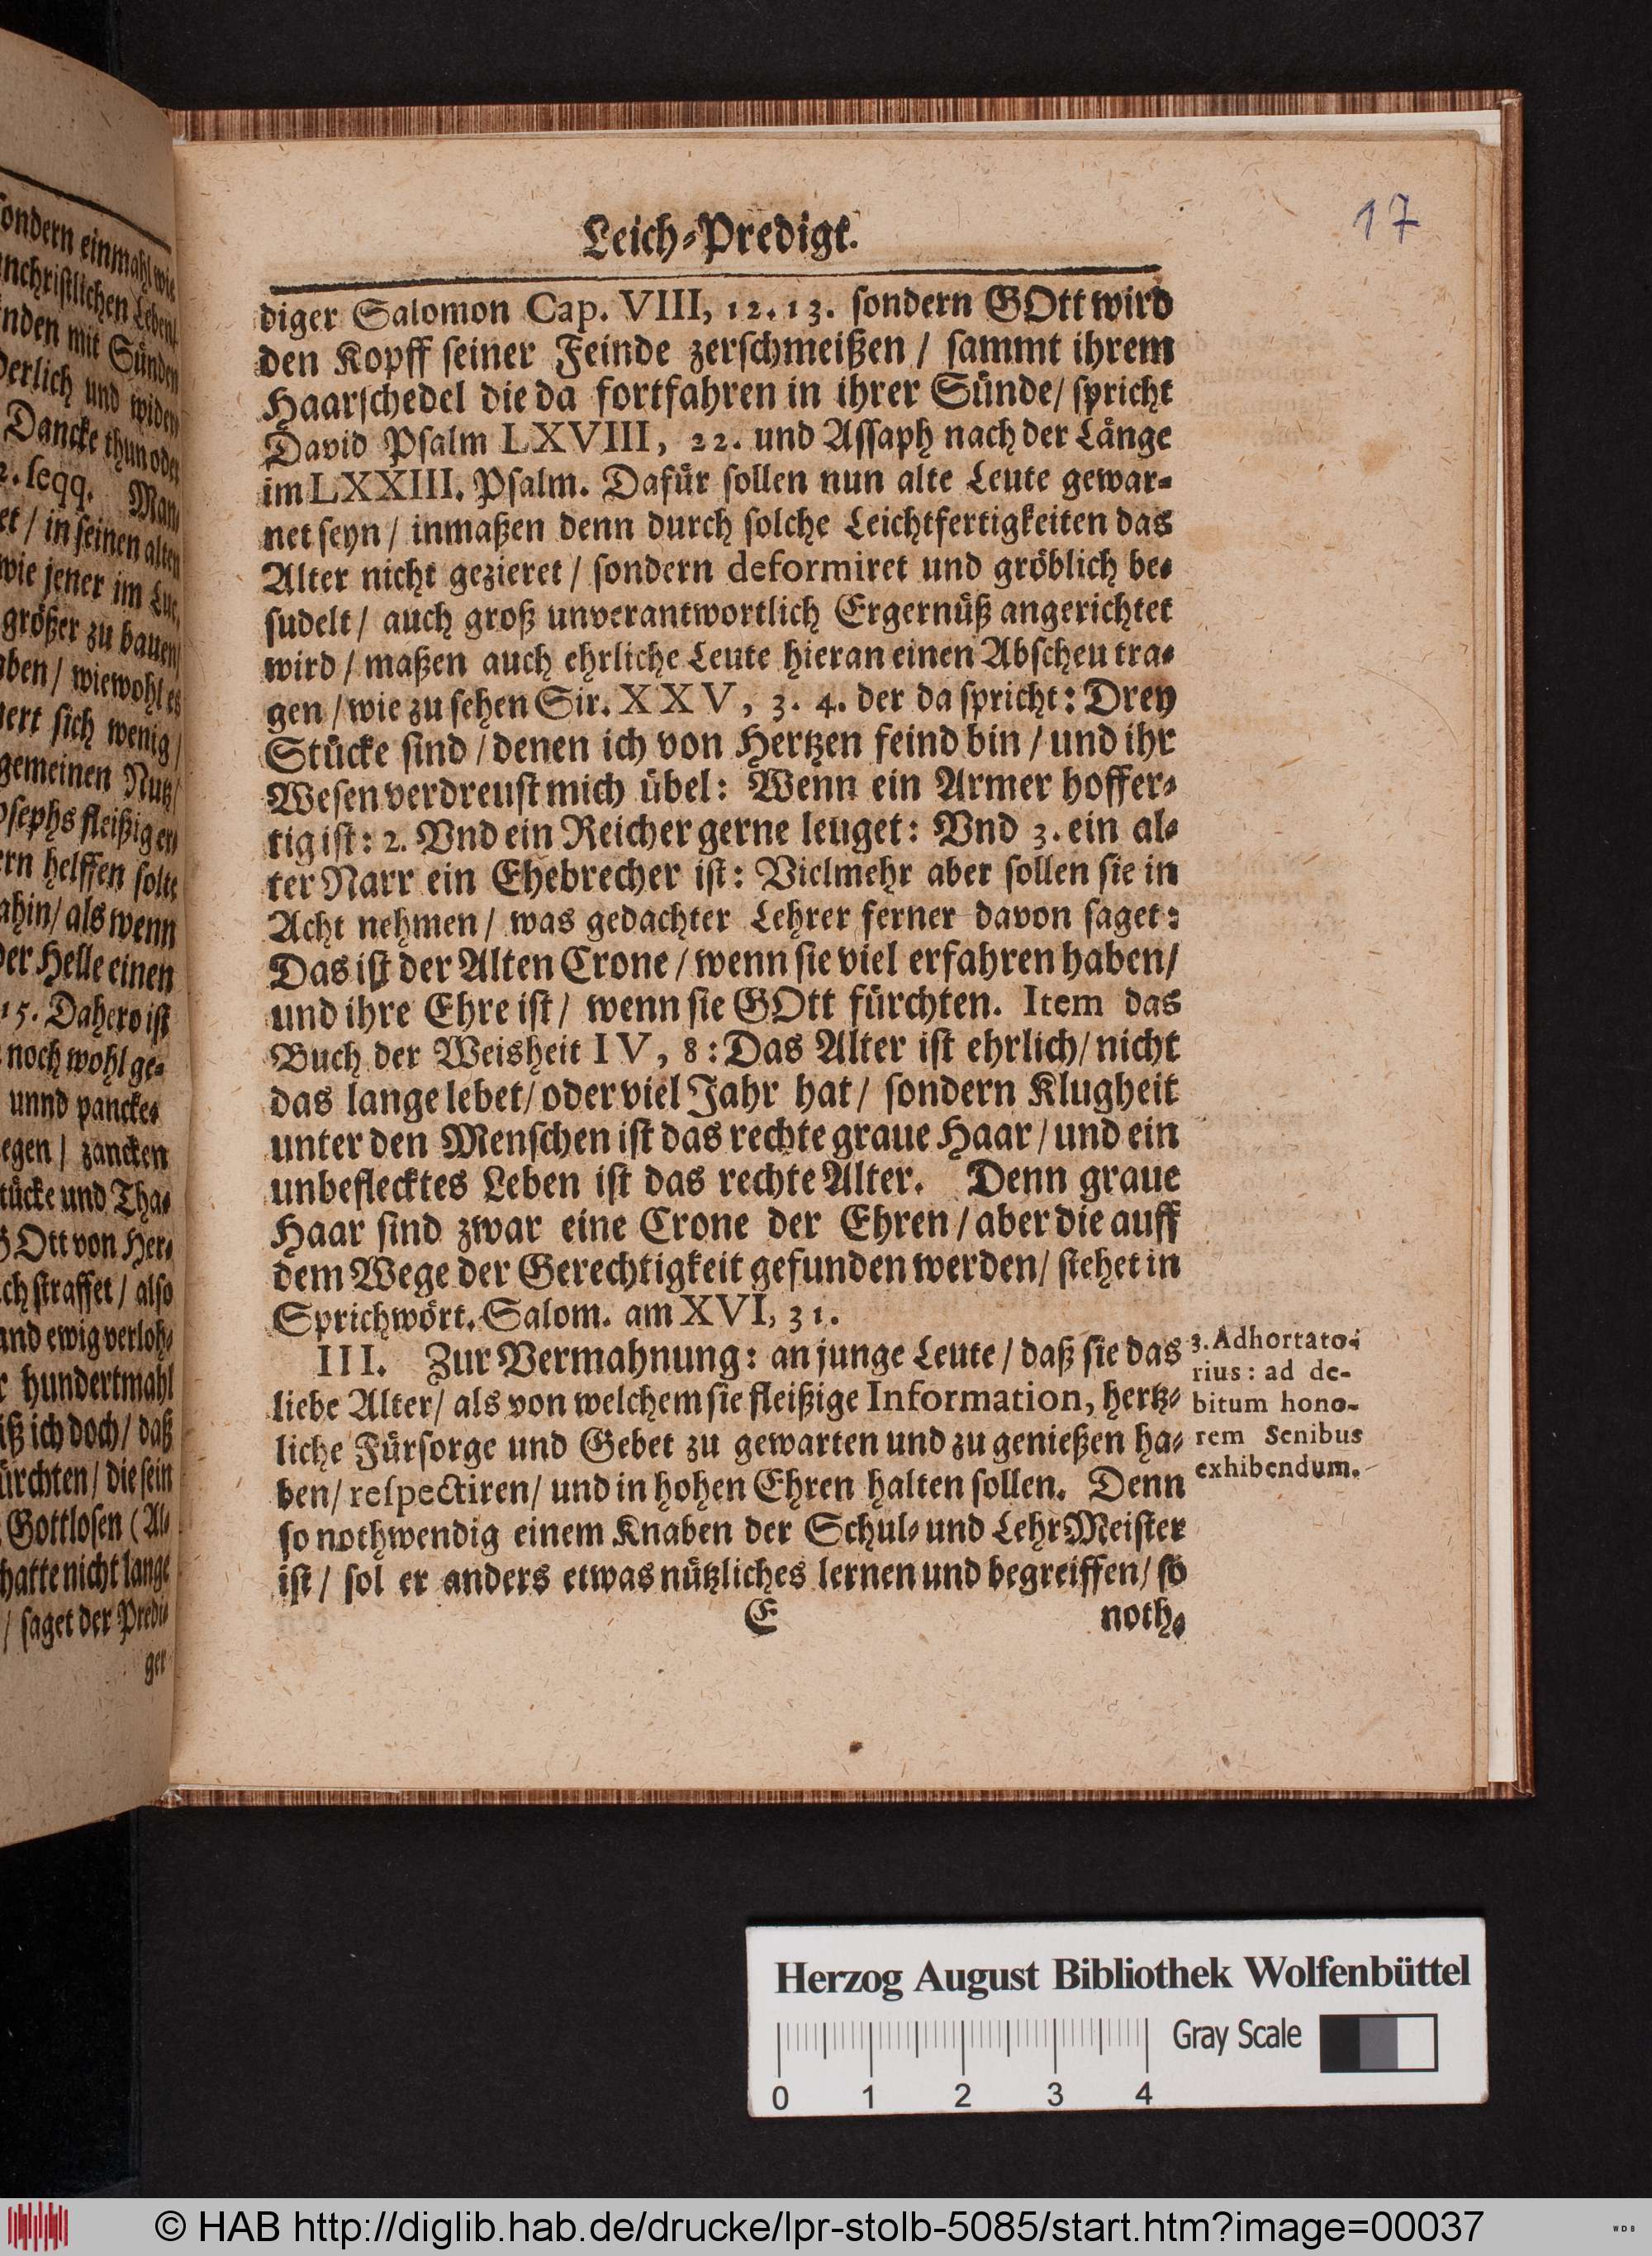 ondern einmahl wie
nchristlichen Leben/
nden mit Sünden
derlich und widen
Dancke thun oder
2. seqq. Man/
et / in seinen alten
wie jener im Luc.
größer zu bauen/
aben / wiewohl es
ert sich wenig /
gemeinen Nutz/
osephs fleißig er
ern helffen solte
ahin/ als wenn
der Helle einen
15. Dahero ist
noch wohl ge-
unnd pancke-
egen / zancken
tücke und Tha-
GOtt von Her-
ch straffet / also
und ewig verloh-
r hundertmahl
iß ich doch / daß
ürchten / die sein
Gottlosen (Al-
hatte nicht lange
/ saget der Predi-
ger
17
Leich-Predigt.
diger Salomon Cap. VIII, 12. 13. sondern GOtt wird
den Kopff seiner Feinde zerschmeißen / sammt ihrem
Haarschedel die da fortfahren in ihrer Sünde/ spricht
David Psalm LXVIII, 22. und Assaph nach der Länge
im LXXIII. Psalm. Dafür sollen nun alte Leute gewar-
net seyn / inmaßen denn durch solche Leichtfertigkeiten das
Alter nicht gezieret / sondern deformiret und gröblich be-
sudelt / auch groß unverantwortlich Ergernüß angerichtet
wird / maßen auch ehrliche Leute hieran einen Abscheu tra-
gen / wie zu sehen Sir. XXV, 3. 4. der da spricht: Drey
Stücke sind / denen ich von Hertzen feind bin / und ihr
Wesen verdreust mich übel: Wenn ein Armer hoffer-
tig ist: 2. Vnd ein Reicher gerne leuget: Vnd 3. ein al-
ter Narr ein Ehebrecher ist: Vielmehr aber sollen sie in
Acht nehmen / was gedachter Lehrer ferner davon saget:
Das ist der Alten Crone / wenn sie viel erfahren haben/
und ihre Ehre ist / wenn sie GOtt fürchten. Item das
Buch der Weisheit IV, 8: Das Alter ist ehrlich/ nicht
das lange lebet/ oder viel Jahr hat / sondern Klugheit
unter den Menschen ist das rechte graue Haar / und ein
unbeflecktes Leben ist das rechte Alter. Denn graue
Haar sind zwar eine Crone der Ehren / aber die auff
dem Wege der Gerechtigkeit gefunden werden/ stehet in
Sprichwört. Salom. am XVI, 31.
III. Zur Vermahnung: an junge Leute / daß sie das
liebe Alter/ als von welchem sie fleißige Information, hertz-
liche Fürsorge und Gebet zu gewarten und zu genießen ha-
ben/ respectiren/ und in hohen Ehren halten sollen. Denn
so nothwendig einem Knaben der Schul- und LehrMeister
ist / sol er anders etwas nützliches lernen und begreiffen/ so
E noth-
3. Adhortato-
rius: ad de-
bitum hono-
rem Senibus
exhibendum.
Herzog August Bibliothek Wolfenbüttel
Gray Scale
0 1 2 3 4
© HAB http://diglib.hab.de/drucke/lpr-stolb-5085/start.htm?image=00037
WDB